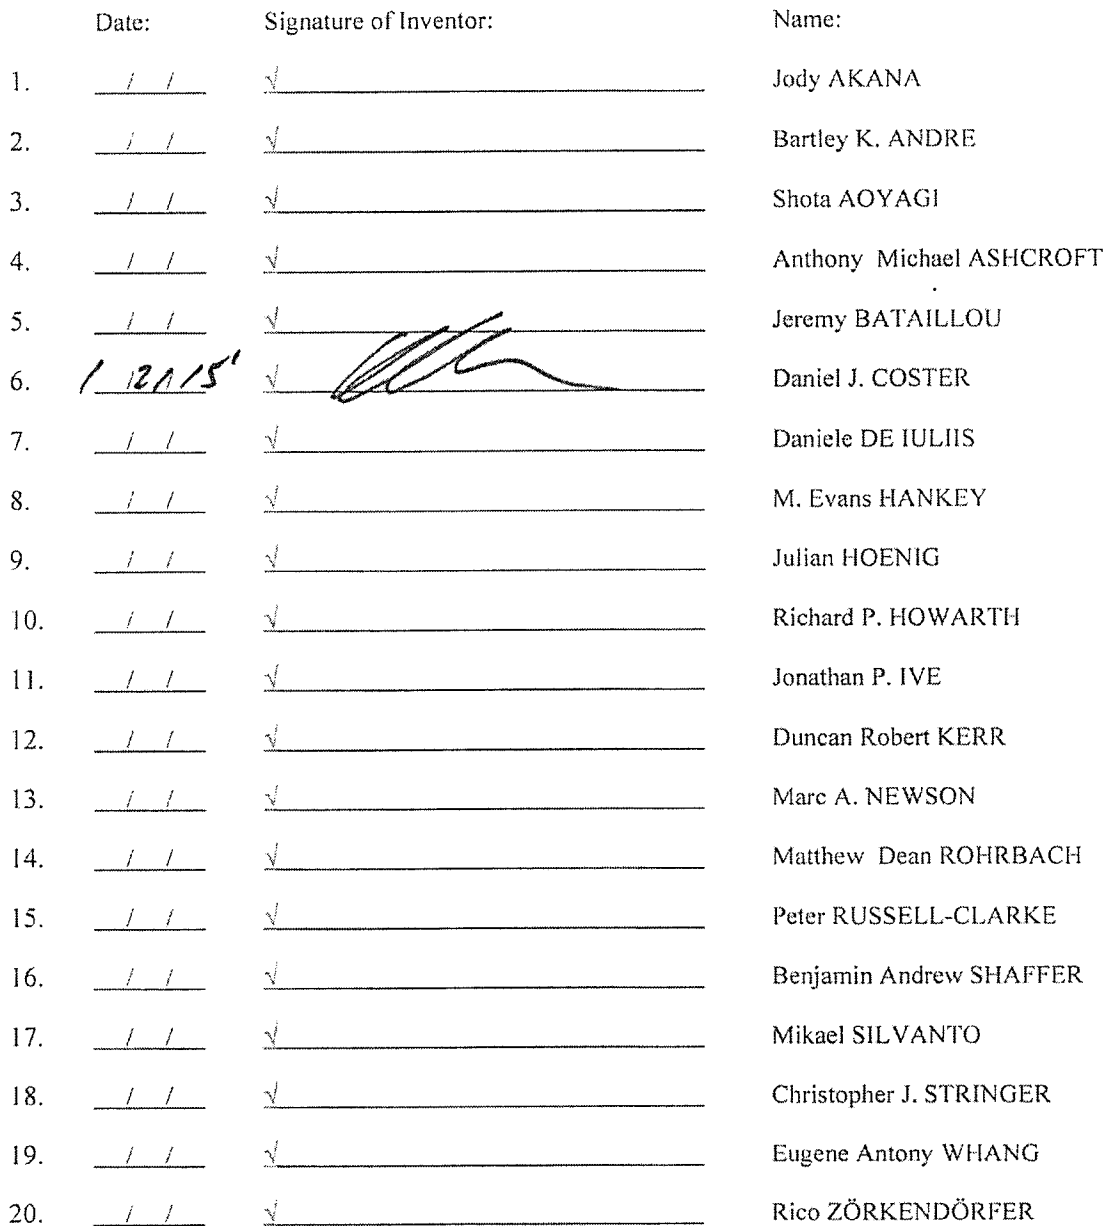 Date: Signature of Inventor: Name:
1. / / √ Jody AKANA
2. / / √ Bartley K. ANDRE
3. / / √ Shota AOYAGI
4. / / √ Anthony Michael ASHCROFT
5. / / √ Jeremy BATAILLOU
6. √ Daniel J. COSTER
7. / / √ Daniele DE IULIIS
8. / / √ M. Evans HANKEY
9. / / √ Julian HOENIG
10. / / √ Richard P. HOWARTH
11. / / √ Jonathan P. IVE
12. / / √ Duncan Robert KERR
13. / / √ Marc A. NEWSON
14. / / √ Matthew Dean ROHRBACH
15. / / √ Peter RUSSELL-CLARKE
16. / / √ Benjamin Andrew SHAFFER
17. / / √ Mikael SILVANTO
18. / / √ Christopher J. STRINGER
19. / / √ Eugene Antony WHANG
20. / / √ Rico ZÖRKENDÖRFER